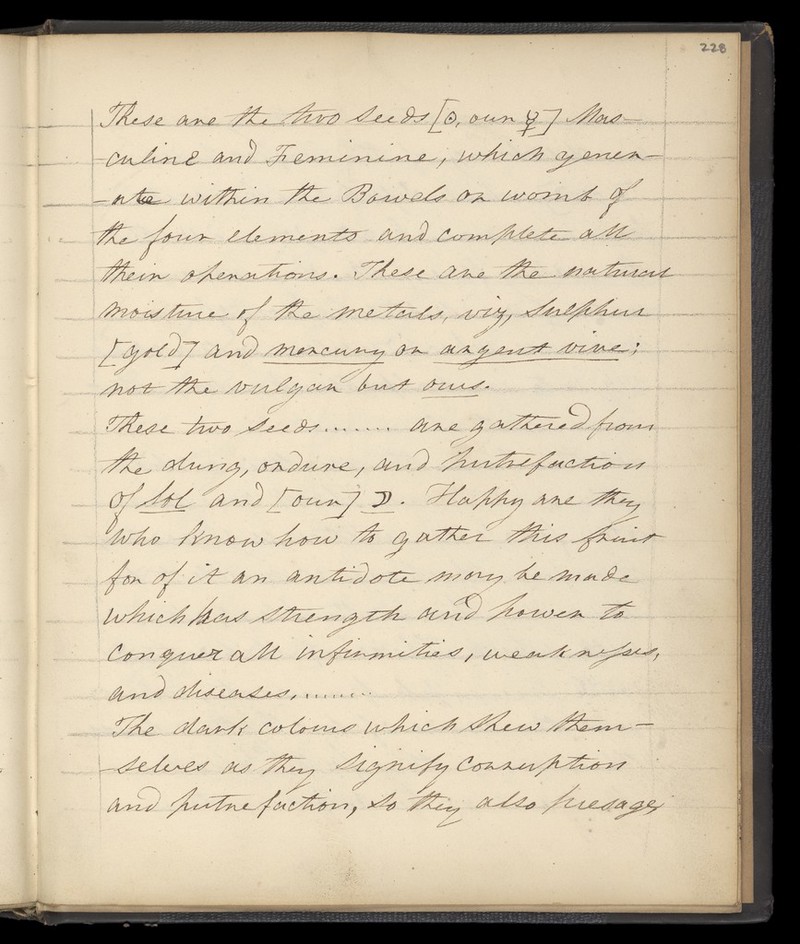 228
These are the two seeds [☉, our ☿] Mas-
-culine and Feminine, which gener-
-ate within the Bowels or womb of
the four elements and complete all
their operations. These are the natural
moisture of the metals, viz, Sulphur
[gold] and mercury or argent vive;
not the vulgar but ours.
These two seeds........ are gathered from
the dung, ordure, and putrefaction
of Sol and [our] ☽. Happy are they
who know how to gather this fruit
for of it an antidote may be made
which has strength and power to
conquer all infirmities, weaknesses,
and diseases,.......
The dark colours which shew them-
-selves as they signify corruption
and putrefaction, so they also presage